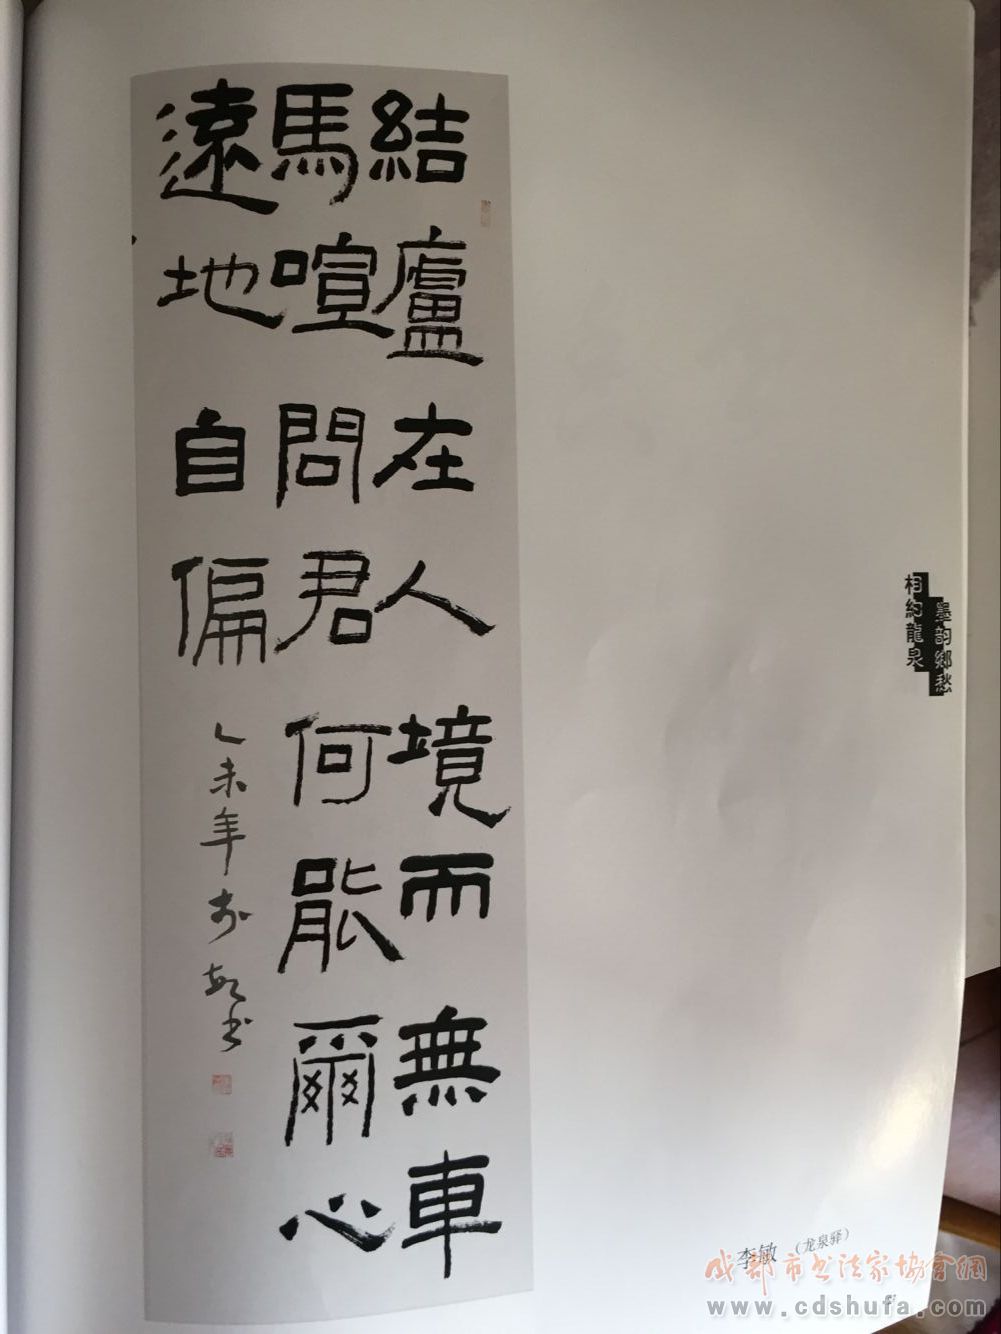 結廬在人境而無車
馬喧問君何能爾心
遠地自偏
乙未年李敏书
墨韵鄉愁
相約龍泉
李敏 （龙泉驿）
成都市书法家协會網
www.cdshufa.com